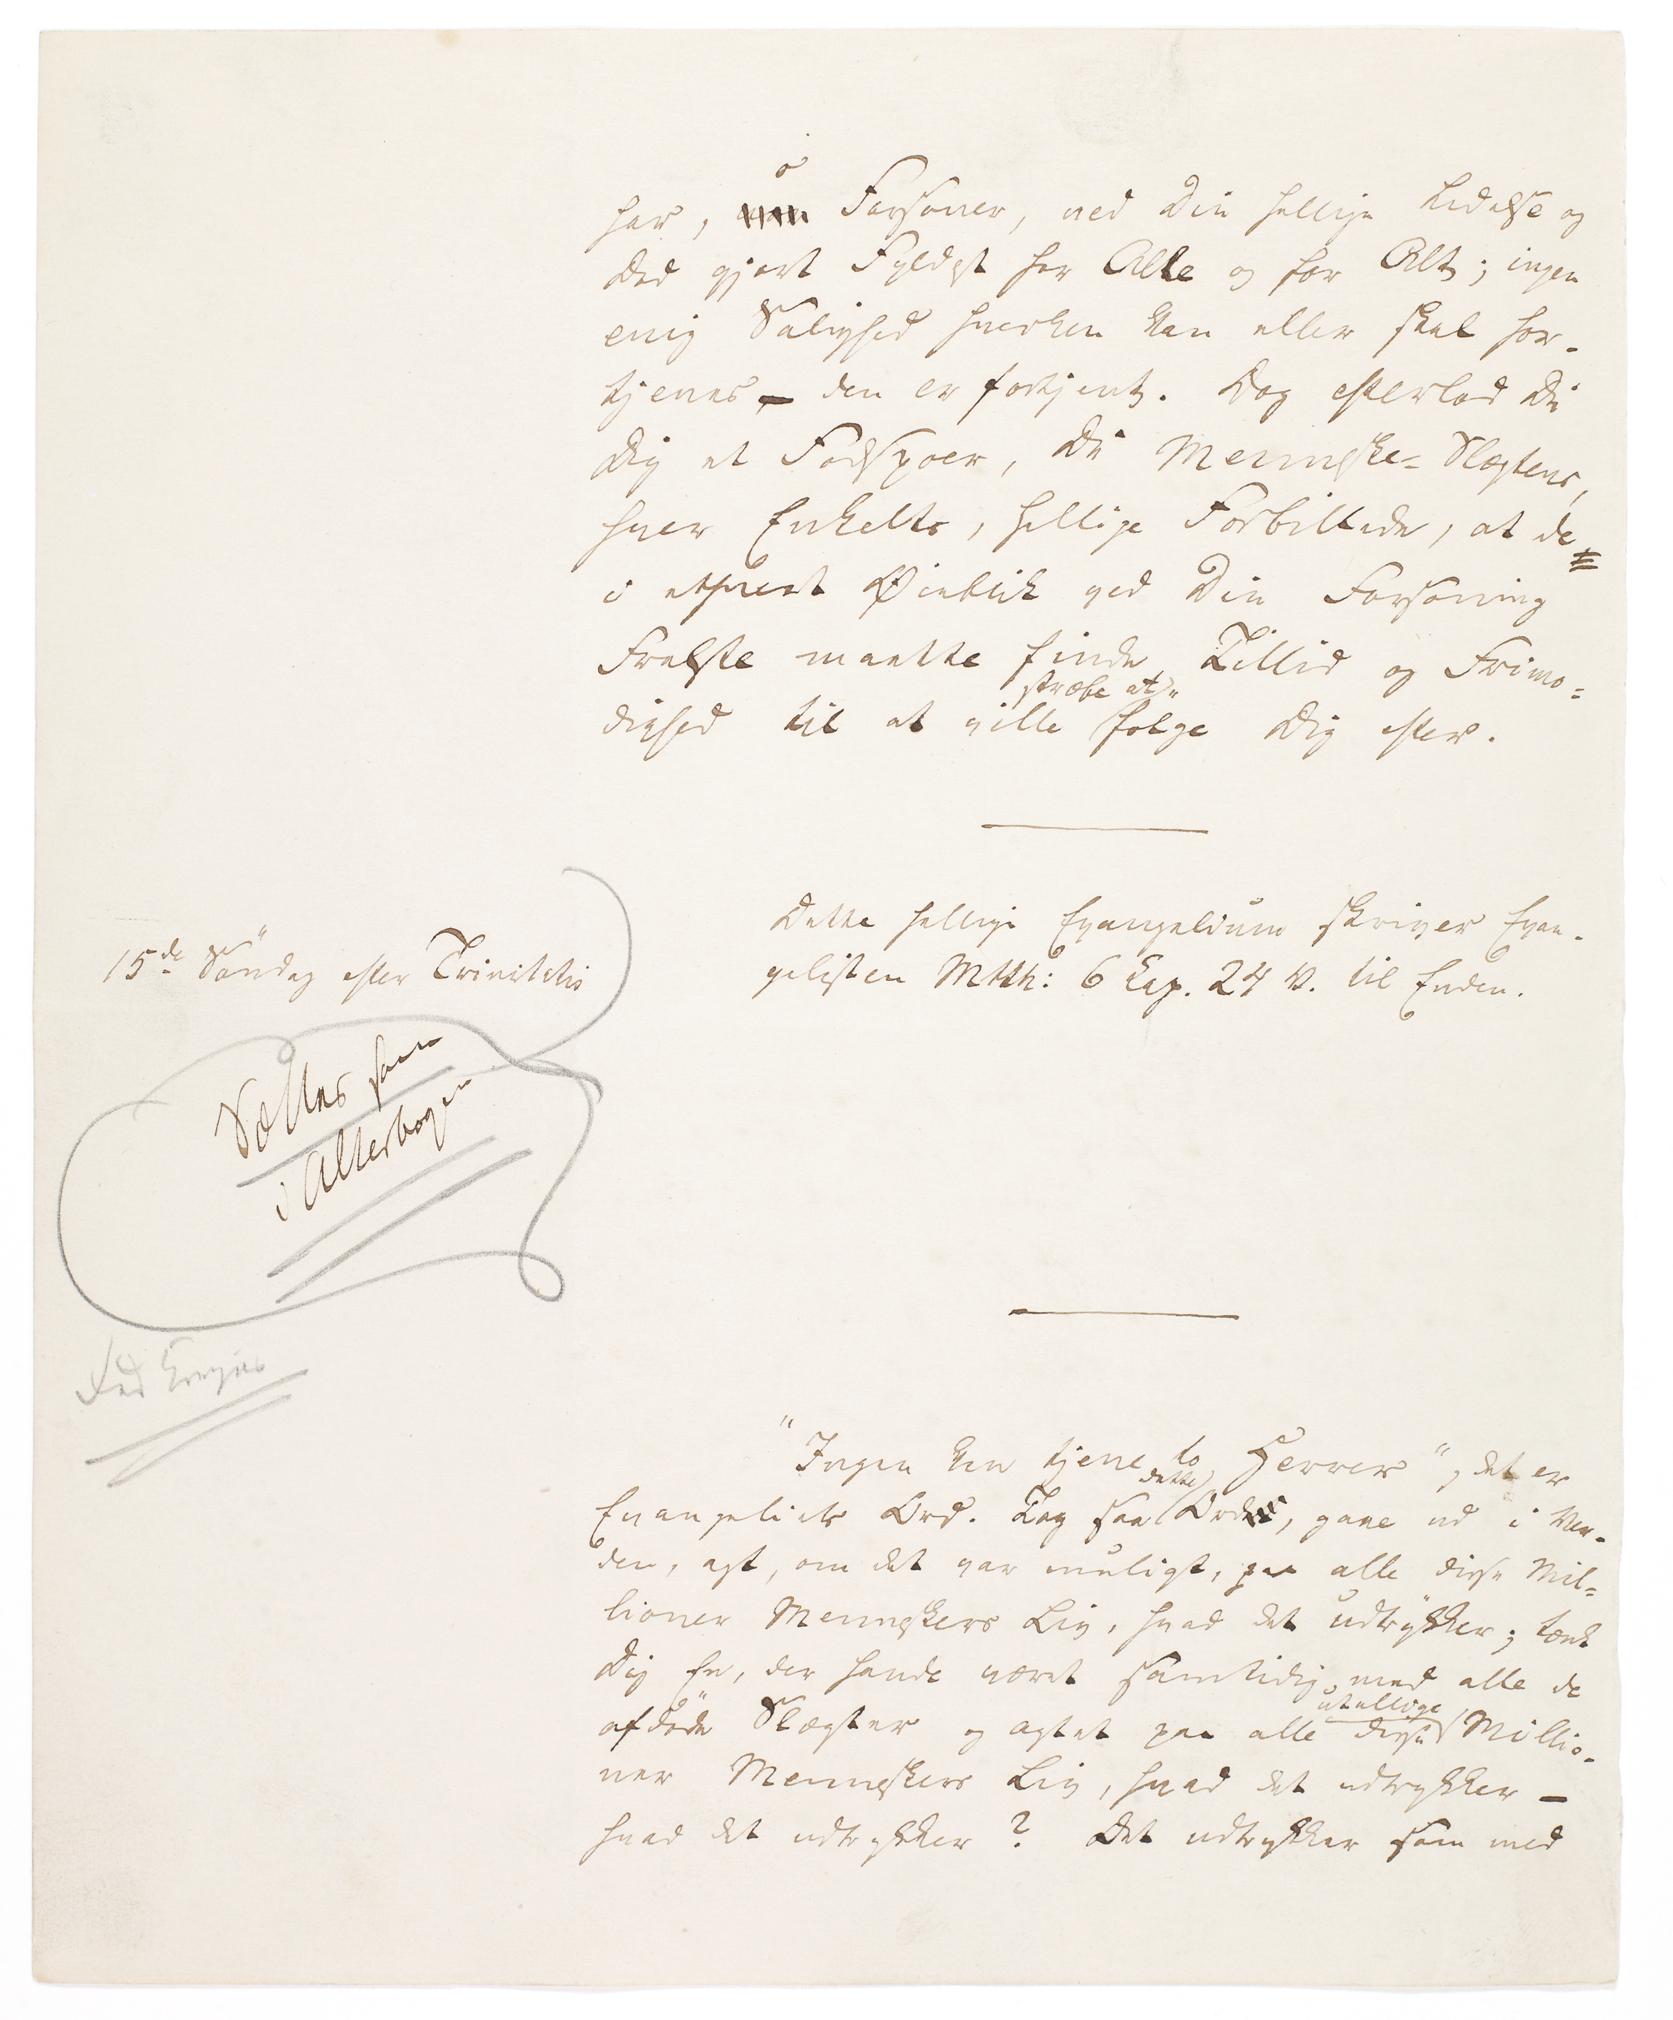 har, o Forsoner, ved Din hellige Lidelse og
Død gjort Fyldest for Alle og for Alt; ingen
evig Salighed hverken kan eller skal for-
tjenes – den er fortjent. Dog efterlod Du
Dig et Fodspoer, Du Menneske-Slægtens,
hver Enkelts, hellige Forbillede, at de
i ethvert Øieblik ved Din Forsoning
Frelste maatte finde Tillid og Frimo-
stræbe at
dighed til at ville følge Dig efter.
Dette hellige Evangelium skriver Evan-
gelisten Mtth: 6 Cap. 24 V. til Enden.
15de Søndag efter Trinitatis
Sættes som
i Alterbogen
"Ingen kan tjene to Herrer", det er
dette
Evangeliets Ord. Tag saa Ord, gaae ud i Ver-
den, agt, om det var muligt, paa alle disse Mil-
lioner Menneskers Liv, hvad det udtrykker; tænk
Dig En, der havde været samtidig med alle de
utallige
afdøde Slægter og agtet paa alle disse Millio-
ner Menneskers Liv, hvad det udtrykker –
hvad det udtrykker? Det udtrykker som med